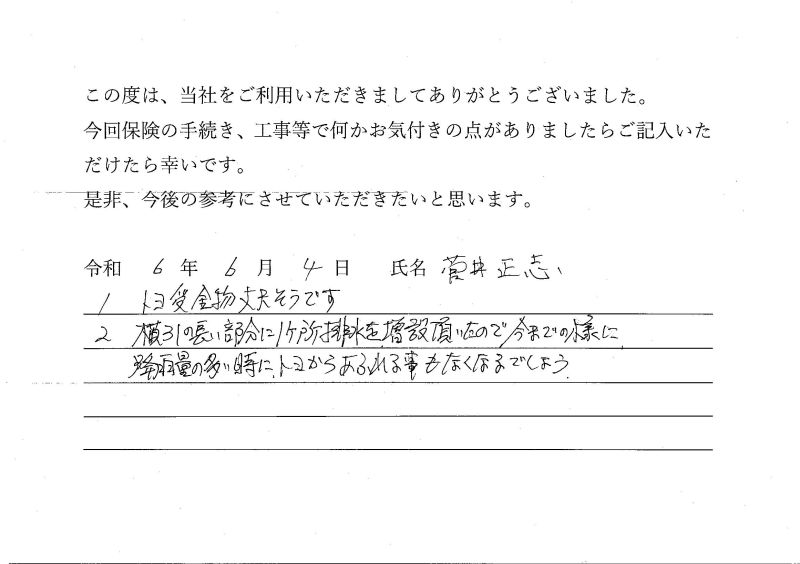 この度は、当社をご利用いただきましてありがとうございました。
今回保険の手続き、工事等で何かお気付きの点がありましたらご記入いた
だけたら幸いです。
是非、今後の参考にさせていただきたいと思います。
令和 6 年 6 月 4 日 氏名 菅井正志
1 トヨ受金物丈夫そうです
2 横引の長い部分に1ケ所排水を増設頂いたので今までの様に
降雨量の多い時に、トヨからあふれる事もなくなるでしょう